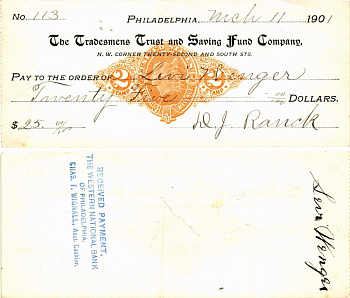 No. 113 Philadelphia, Mch 11 1901
The Tradesmens Trust and Saving Fund Company,
N. W. CORNER TWENTY-SECOND AND SOUTH STS.
PAY TO THE ORDER OF Levi Wenger
Twenty Five DOLLARS.
$ 25.
D J Ranck
RECEIVED PAYMENT,
THE WESTERN NATIONAL BANK
OF PHILADELPHIA.
CHAS. F. WIGNALL, Asst. Cashier.
Levi Wenger